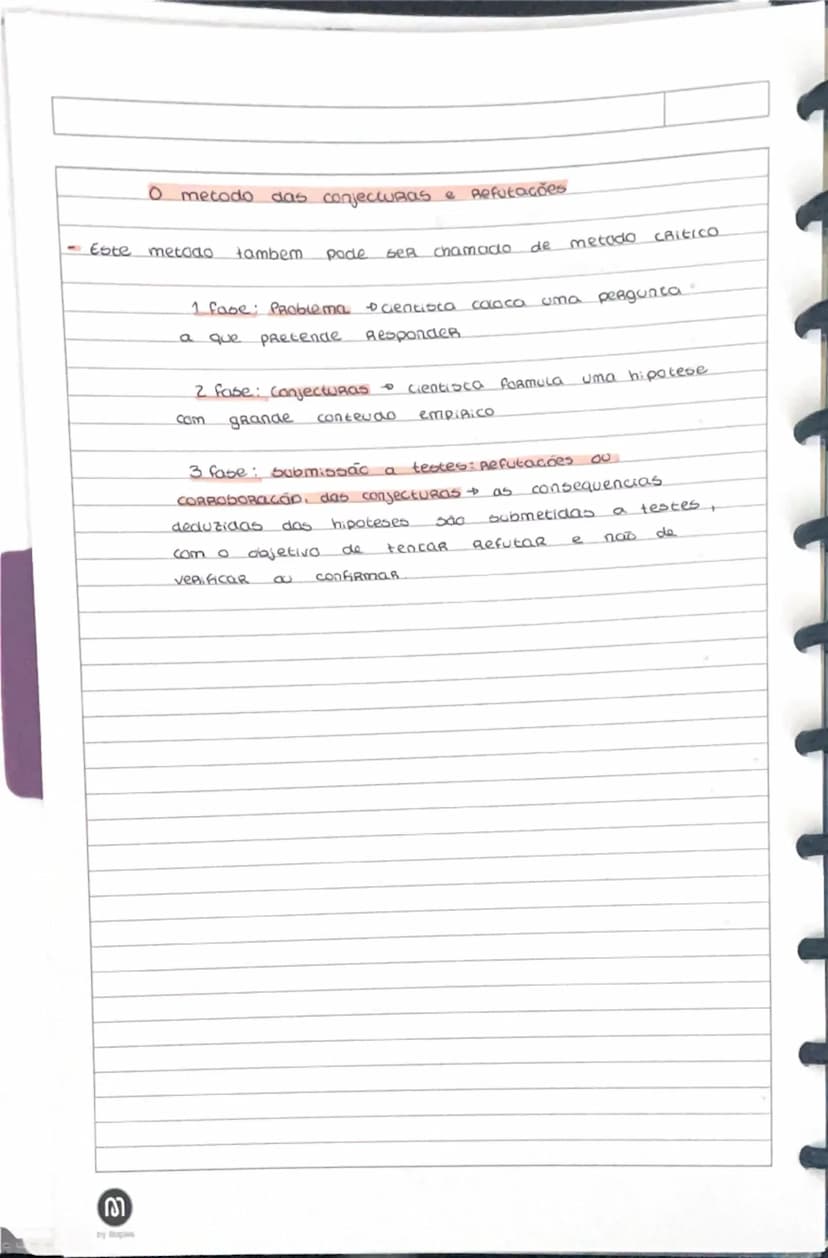 O metodo das conjecturas e Refutações
- Este metodo tambem pode ser chamado de metodo critico
1 fase: Problema → cientista coloca uma pergunta
a que pretende Responder
2 fase: Conjecturas → cientista formula uma hipotese
com grande conteudo empirico
3 fase: submissão a testes: Refutações ou
corroboração, das conjecturas → as consequencias
deduzidas das hipoteses são submetidas a testes,
com o objetivo de tentar Refutar e não de
verificar ou confirmar